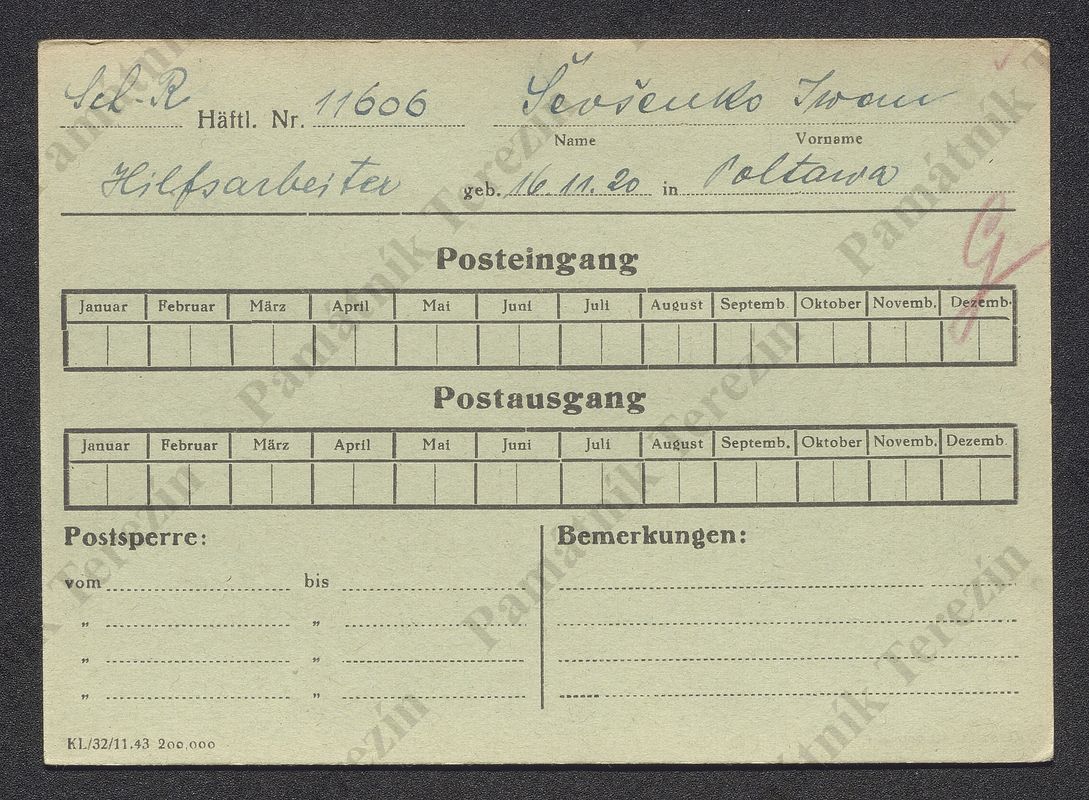 Sch. R Häftl. Nr. 11606 Ševšenko Iwan
Name Vorname
Hilfsarbeiter geb. 16.11.20 in Poltawa
G
Posteingang
Januar Februar März April Mai Juni Juli August Septemb. Oktober Novemb. Dezemb.
Postausgang
Januar Februar März April Mai Juni Juli August Septemb. Oktober Novemb. Dezemb.
Postsperre: Bemerkungen:
vom bis
„ „
„ „
„ „
KL/32/11.43 200.000
Památník Terezín